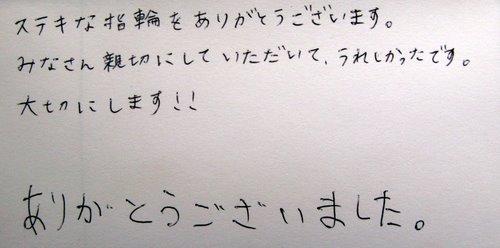 ステキな指輪をありがとうございます。
みなさん親切にしていただいて、うれしかったです。
大切にします!!
ありがとうございました。